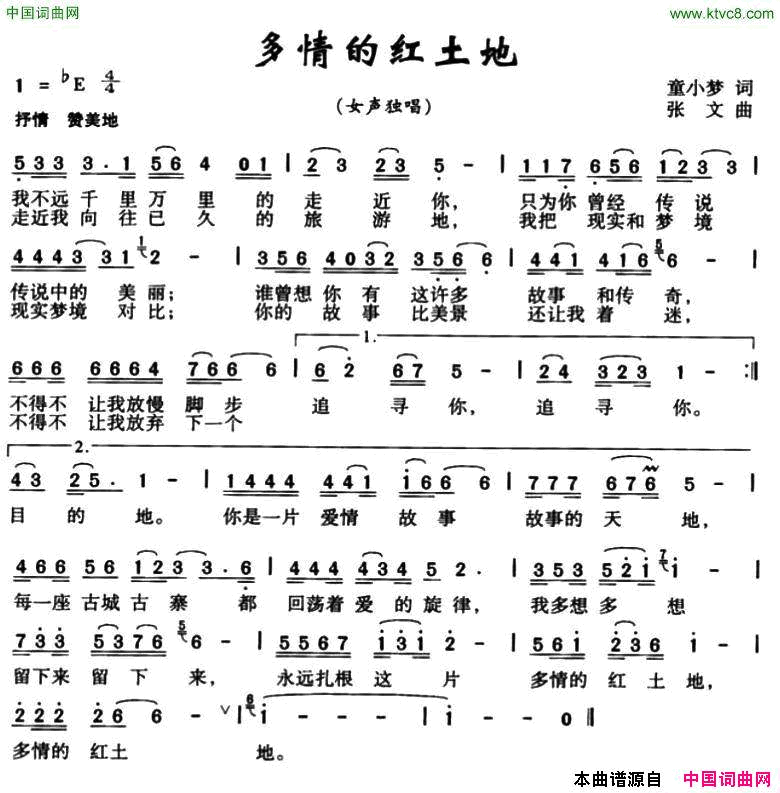 中国词曲网
www.ktvc8.com
多情的红土地
1 = ♭E 4/4
童小梦 词
(女声独唱)
张 文 曲
抒情 赞美地
5 3 3 3 · 1 5 6 4 0 1 | 2 3 2 3 5 - | 1 1 7 6 5 6 1 2 3 3 |
我不远 千 里 万 里 的 走 近 你， 只为你 曾经 传 说
走近我 向 往 已 久 的 旅 游 地， 我把 现实和 梦 境
4 4 4 3 3 1 2 - | 3 5 6 4 0 3 2 3 5 6 6 | 4 4 1 4 1 6 6 - |
传说中的 美 丽； 谁曾想 你 有 这许多 故事 和传 奇，
现实梦境 对 比； 你的 故 事 比美景 还让我 着 迷，
1.
6 6 6 6 6 6 4 7 6 6 6 | 6 2 6 7 5 - | 2 4 3 2 3 1 - :||
不得不 让我放慢 脚 步 追 寻 你， 追 寻 你。
不得不 让我放弃 下一个
2.
4 3 2 5 · 1 - | 1 4 4 4 4 4 1 1 6 6 6 | 7 7 7 6 7 6 5 - |
目 的 地。 你是一片 爱情 故 事 故事的 天 地，
4 6 6 5 6 1 2 3 3 · 6 | 4 4 4 4 3 4 5 2 · | 3 5 3 5 2 1 1 |
每一座 古城 古 寨 都 回荡着 爱 的 旋 律， 我多想 多 想
7 3 3 5 3 7 6 6 - | 5 5 6 7 1 3 1 2 - | 5 6 1 2 3 6 1 - |
留下来 留 下 来， 永远扎根 这 片 多情的 红 土 地，
2 2 2 2 6 6 - ∨ | 1 - - - | 1 - - 0 ||
多情的 红土 地。
本曲谱源自 中国词曲网